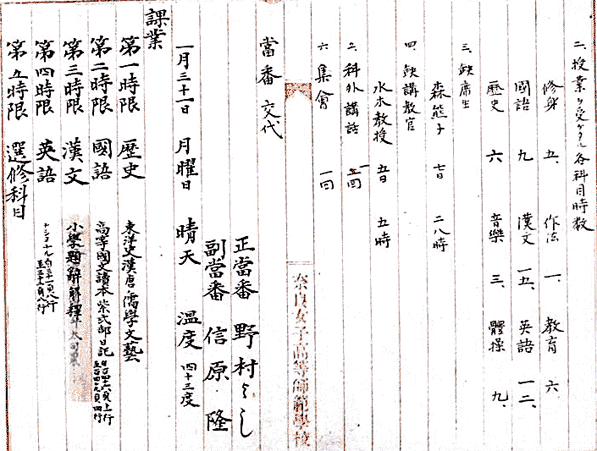 二、授業ヲ受ケタル各科目時数
修身 五、 作法 一、 教育 六、
國語 九 漢文 一五、 英語 一二、
歴史 六 音樂 三、 體操 九、
三、缺席生
森熊子 七日 二八時
四、缺講教官
水木教授 五日 五時
五、科外講話 一回
六、集會 一回
奈良女子高等師範學校
當番交代
正當番 野村よし
副當番 信原 隆
一月三十一日 月曜日 晴天 温度 四十三度
課業
第一時限 歴史 東洋史漢唐ノ儒學文藝
第二時限 國語 高等國文讀本 紫式部日記
第三時限 漢文 小學題辭解釋
第四時限 英語
第五時限 選修科目